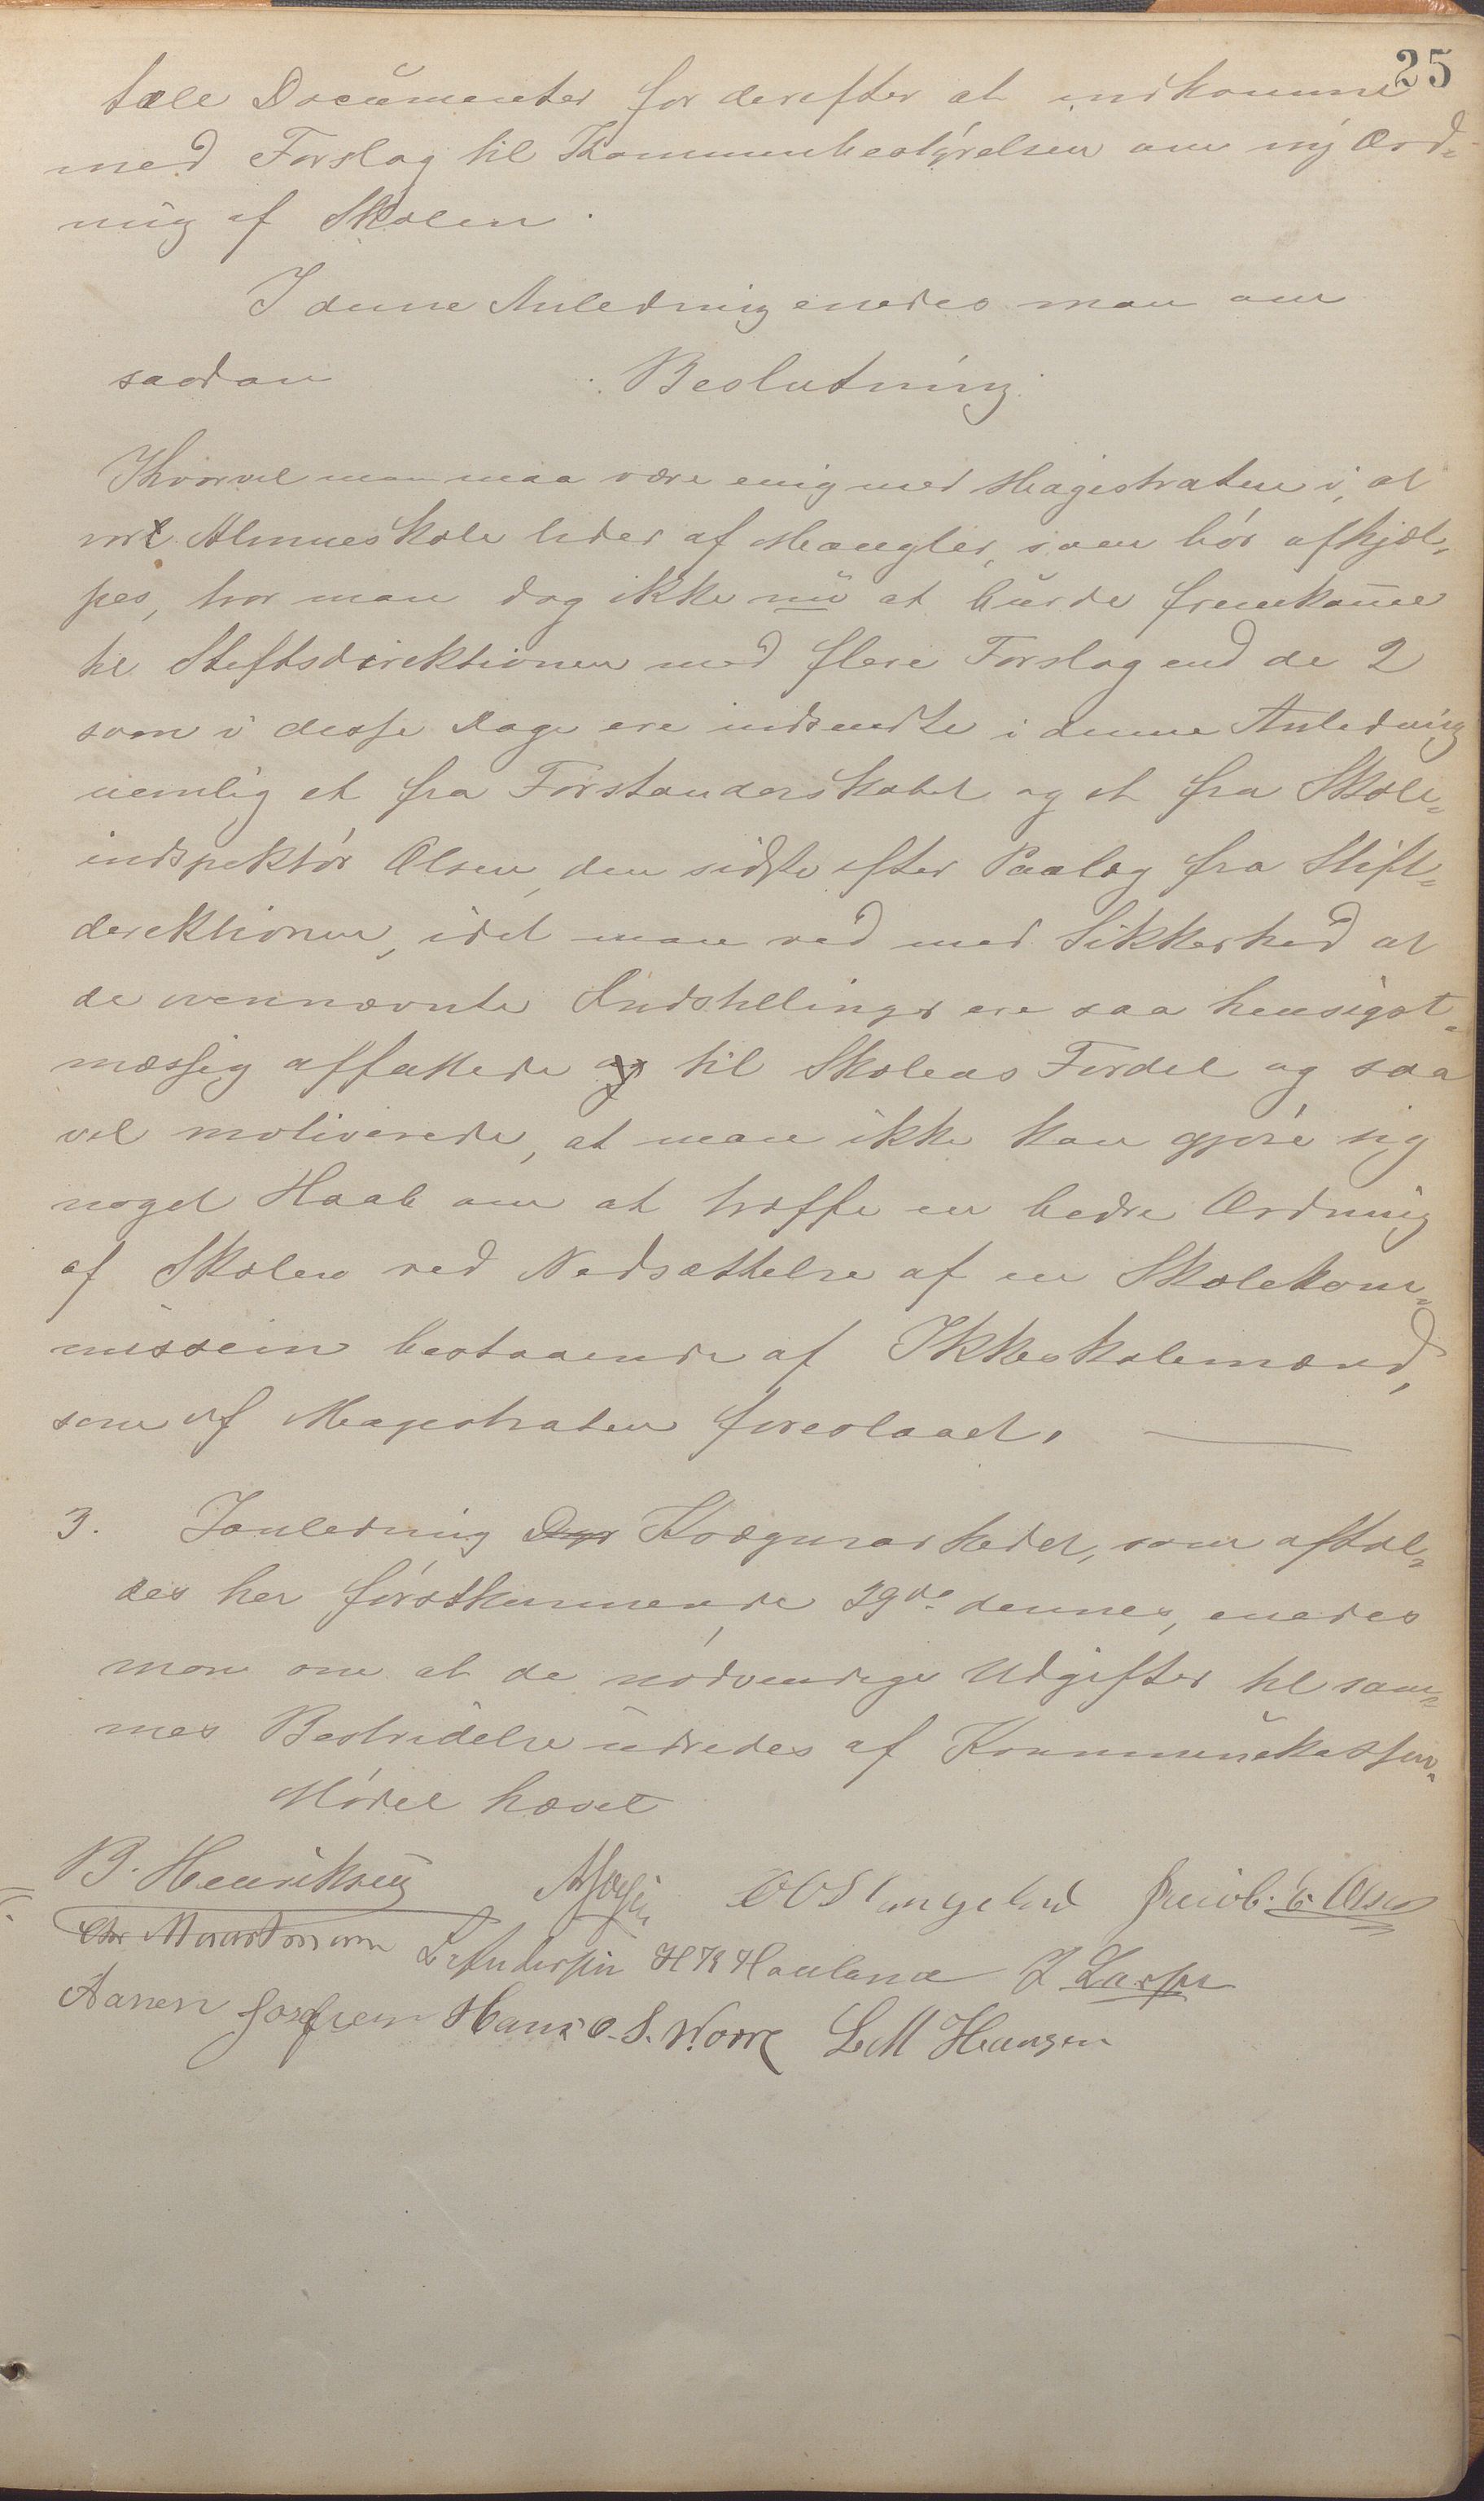 25
tale Documenter for derefter at indkomme
med Forslag til Kommunebestyrelsen om ny Ord-
ning af Skolen.
I denne Anledning enedes man om
saadan Beslutning.
Hvorvel man maa være enig med Magistraten i, at
vor Almueskole lider af Mangler, som bør afhjæl-
pes, tror man dog ikke nu at burde fremkomme
til Stiftsdirektionen med flere Forslag end de 2
som i disse Dage ere indsendte i denne Anledning
nemlig et fra Forstanderskabet og et fra Skole-
indspektør Olsen, den sidste efter Paalæg fra Stift-
derektionen, idet man ved med Sikkerhed at
de ovennævnte Indstillinger ere saa hensigt-
mæssig affattede til Skolens Fordel og saa
vel motiverede, at man ikke kan gjøre sig
noget Haab om at træffe en bedre Ordning
af Skolen ved Nedsættelse af en Skolekom-
missein bestaaende af Ikkeskolemænd,
som af Magistraten foreslaaet.
3. Ianledning Kvægmarkedet, som afhol-
des her førstkommende 29de dennes, enedes
man om at de nødvendige Udgifter til sam-
mes Bestridelse udredes af Kommunekassen.
Mødet hævet
B. Henriksen Jacob. Olsen
Chr Martmann L Andersen H K Hauland L Larsen
Aanen Josefsen Hans O. S. Worre L M Hansen